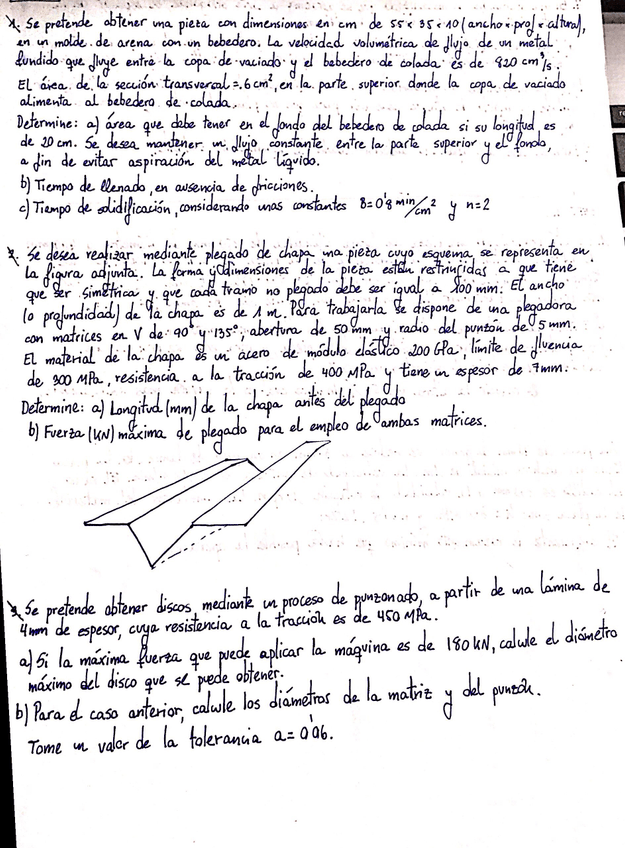 1. Se pretende obtener una pieza con dimensiones en cm de 55 x 35 x 10 (ancho x prof x altura),
en un molde de arena con un bebedero. La velocidad volumétrica de flujo de un metal
fundido que fluye entre la copa de vaciado y el bebedero de colada es de 820 cm³/s.
El área de la sección transversal = 6 cm², en la parte superior donde la copa de vaciado
alimenta al bebedero de colada.
Determine: a) área que debe tener en el fondo del bebedero de colada si su longitud es
de 20 cm. Se desea mantener un flujo constante entre la parte superior y el fondo,
a fin de evitar aspiración del metal líquido.
b) Tiempo de llenado, en ausencia de fricciones.
c) Tiempo de solidificación, considerando unas constantes B=0'8 min/cm² y n=2
2. Se desea realizar mediante plegado de chapa una pieza cuyo esquema se representa en
la figura adjunta. La forma y dimensiones de la pieza están restringidas a que tiene
que ser simétrica y que cada tramo no plegado debe ser igual a 100 mm. El ancho
(o profundidad) de la chapa es de 1 m. Para trabajarla se dispone de una plegadora
con matrices en V de 90° y 135°, abertura de 50 mm y radio del punzón de 5 mm.
El material de la chapa es un acero de módulo elástico 200 GPa, límite de fluencia
de 300 MPa, resistencia a la tracción de 400 MPa y tiene un espesor de 7 mm.
Determine: a) Longitud (mm) de la chapa antes del plegado
b) Fuerza (KN) máxima de plegado para el empleo de ambas matrices.
3. Se pretende obtener discos, mediante un proceso de punzonado, a partir de una lámina de
4 mm de espesor, cuya resistencia a la tracción es de 450 MPa.
a) Si la máxima fuerza que puede aplicar la máquina es de 180 kN, calcule el diámetro
máximo del disco que se puede obtener.
b) Para el caso anterior, calcule los diámetros de la matriz y del punzón.
Tome un valor de la tolerancia a = 0'06.